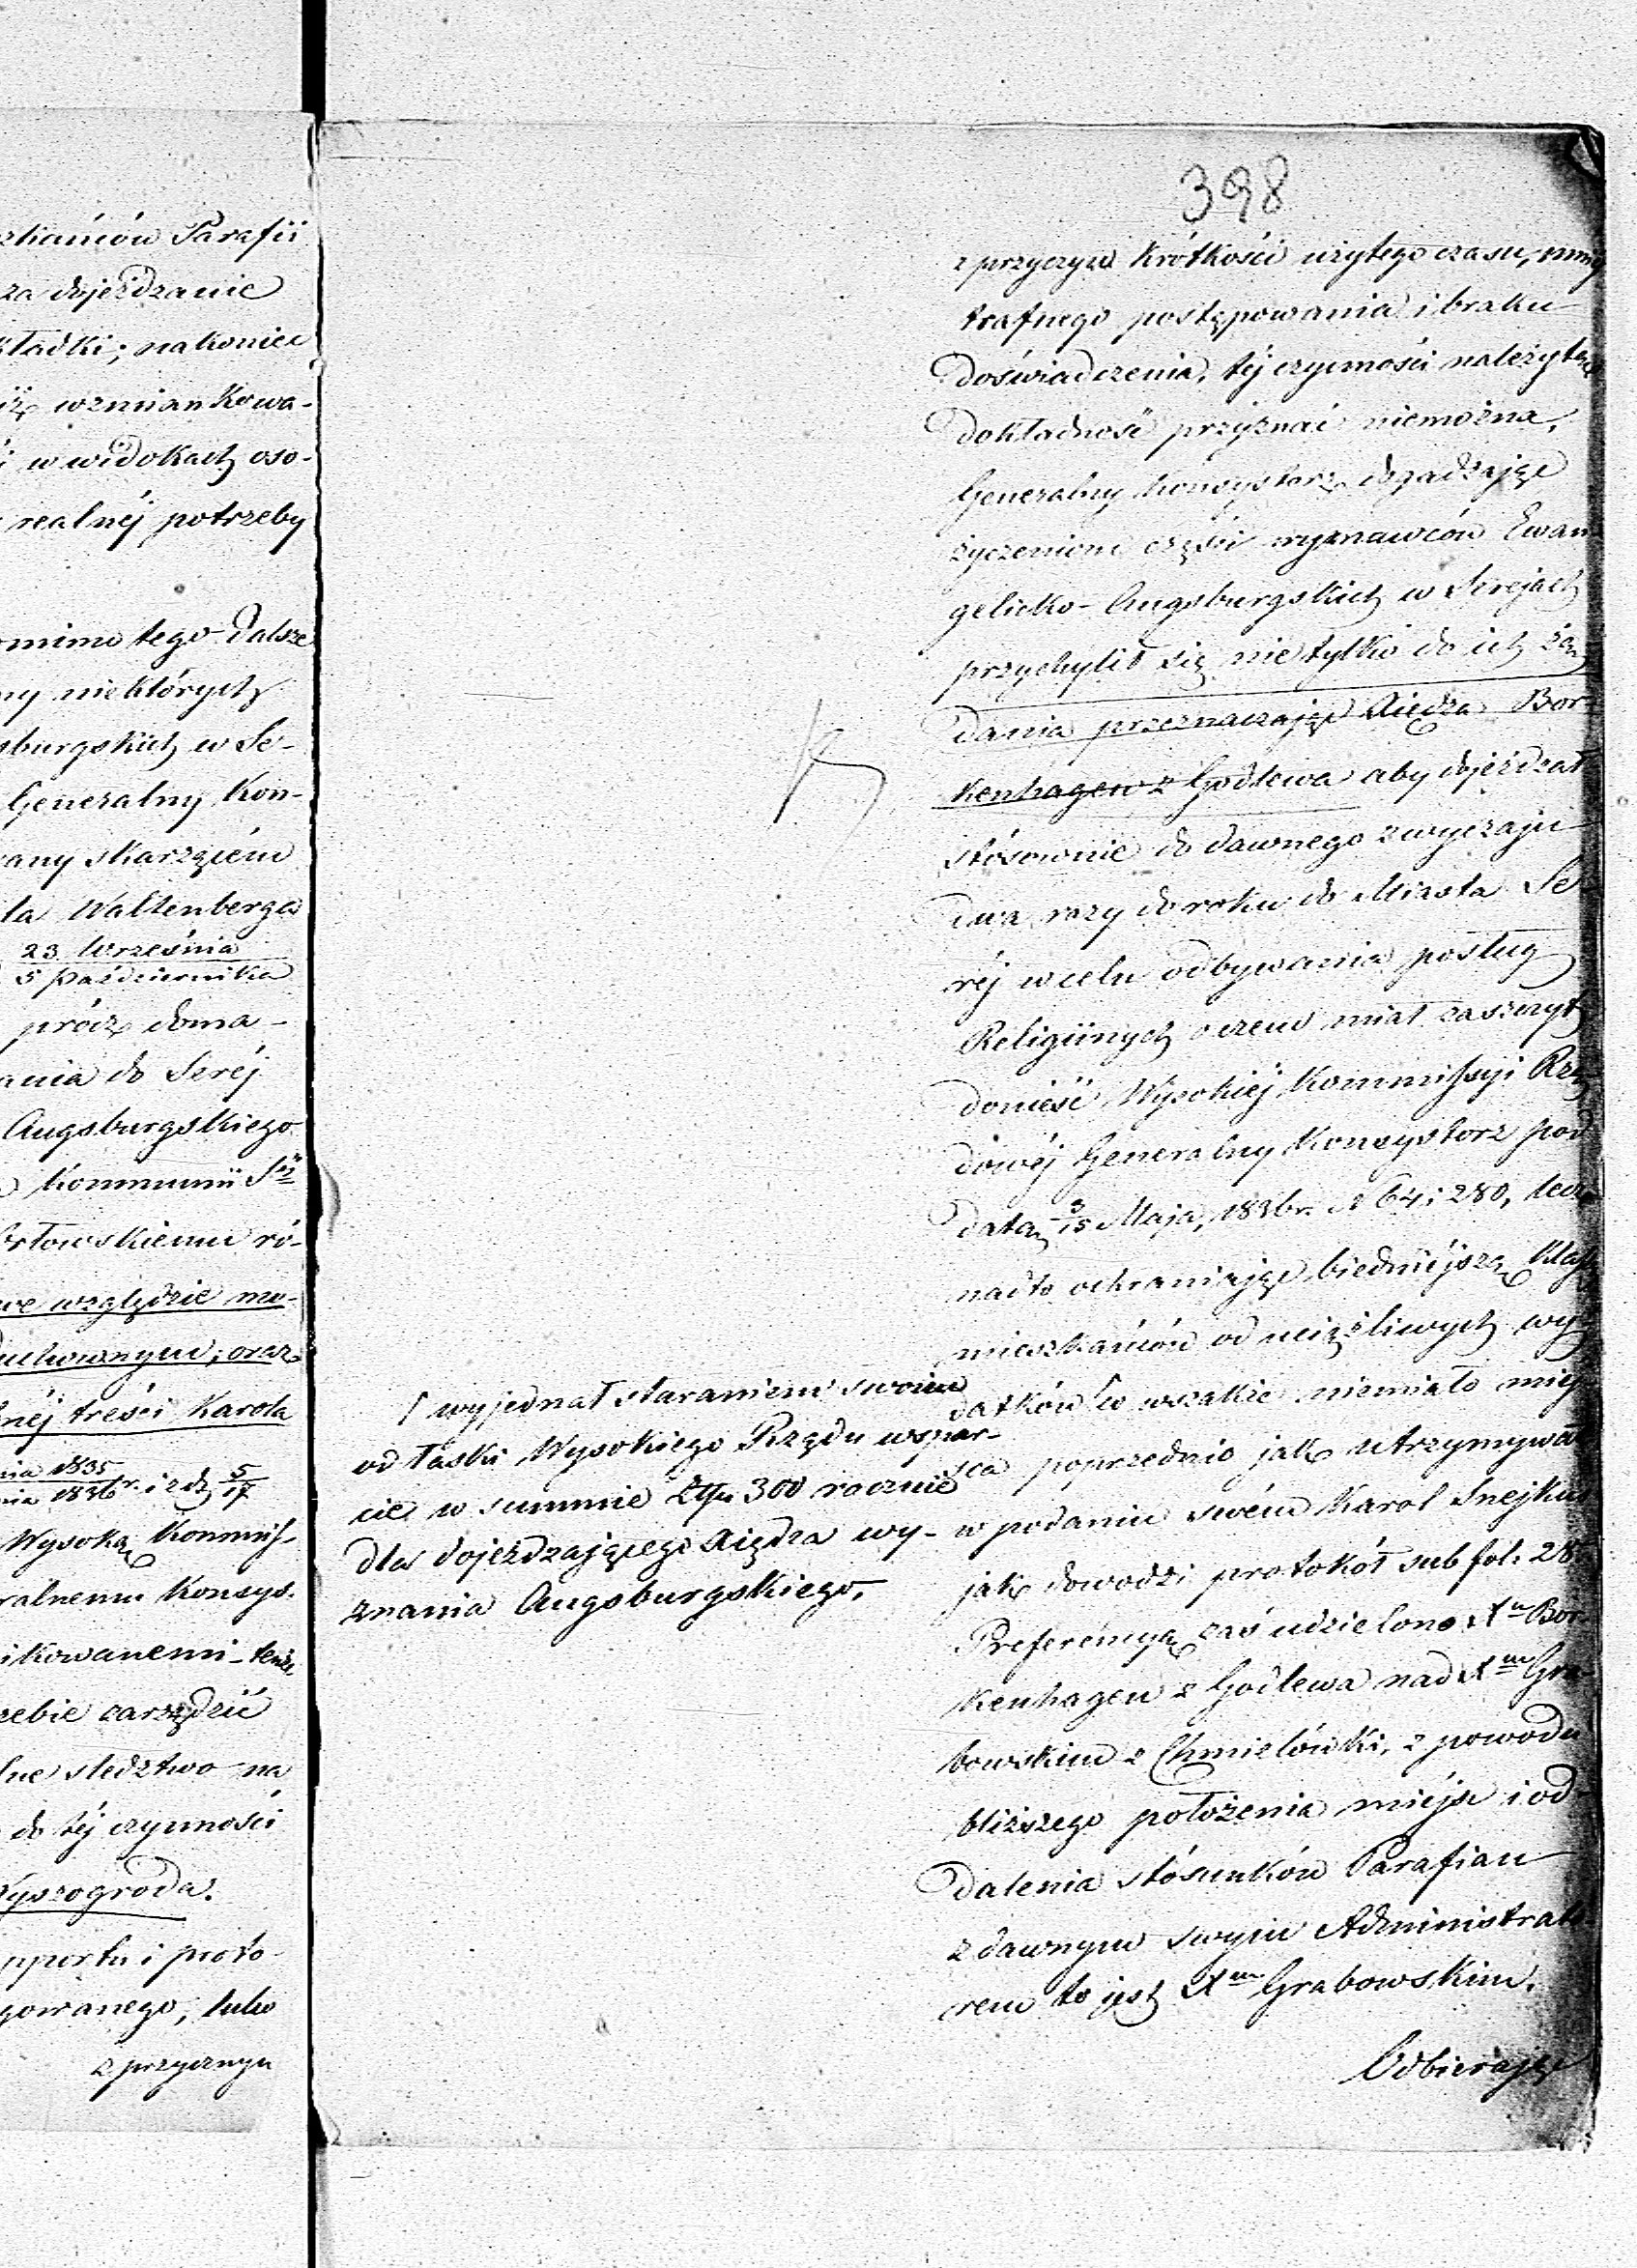 zkańców Parafii
za dojeżdzanie
kładki; nakoniec
iż wzmiankowa-
i w widokach oso-
realnéj potrzeby
omimo tego dalsze
ny niektórych
sburgskich w Se-
Generalny Kon-
any skarżącém
la Waltenberga
23 Września
5 Października
prócz doma-
ania do Seréj
Augsburgskiego
Kommunii Sej
rłowskiemu ró-
we względzie mo-
duchownym; oraz
néj treści Karola
nia 1835
nia 1836 r. i z d. 5/17
Wysoką Kommis-
ralnemu Konsys.
ikowanemi tenże
rzebie zarządzić
lne sledztwo na
do téj czynności
Wyszogroda.
pportu i proto-
gowanego, lubo
z przyczyn
398
z przyczyn krótkości użytego czasu, mniej
trafnego postępowania i braku
doświadczenia, téj czynności należytéj
dokładność przyznać niemożna,
Generalny Konsystorz dogadzając
życzeniom części wyznawców Ewan-
gelicko-Augsburgskich w Serejach
przychylił się nie tylko do ich żą-
dania przeznaczając Xiędza Bor-
kenhagen z Godlewa aby dojeżdzał
stósownie do dawnego zwyczaju
dwa razy do roku do Miasta Se-
réj w celu odbywania posług
Religiinych o czem miał zaszczyt
donieść Wysokiéj Kommissyi Rzą-
dowéj Generalny Konsystorz pod
datą 3/15 Maja, 1836 r. N 64 i 280, lecz
nadto ochraniając biedniéjszą klassę
mieszkańców od uciążliwych wy-
datków ⌈ co wszakże niemiało miéj-
sca poprzednio jak utrzymywał
w podaniu swém Karol Snejkus
jak dowodzi protokół sub fol. 28
Preferencyą zaś udzielono Xu Bor-
kenhagen z Godlewa nad Xem Gra-
bowskim z Chmielówki, z powodu
bliższego położenia miéjsc i od-
dalenia stósunków Parafian
z dawnym swym Administrato-
rem to jest Xem Grabowskim.
Odbierając
⌈ wyjednał staraniem swoim
od łaski Wysokiego Rządu wspar-
cie w summie Złp. 300 rocznie
dla dojeżdzającego Xiędza wy-
znania Augsburgskiego,